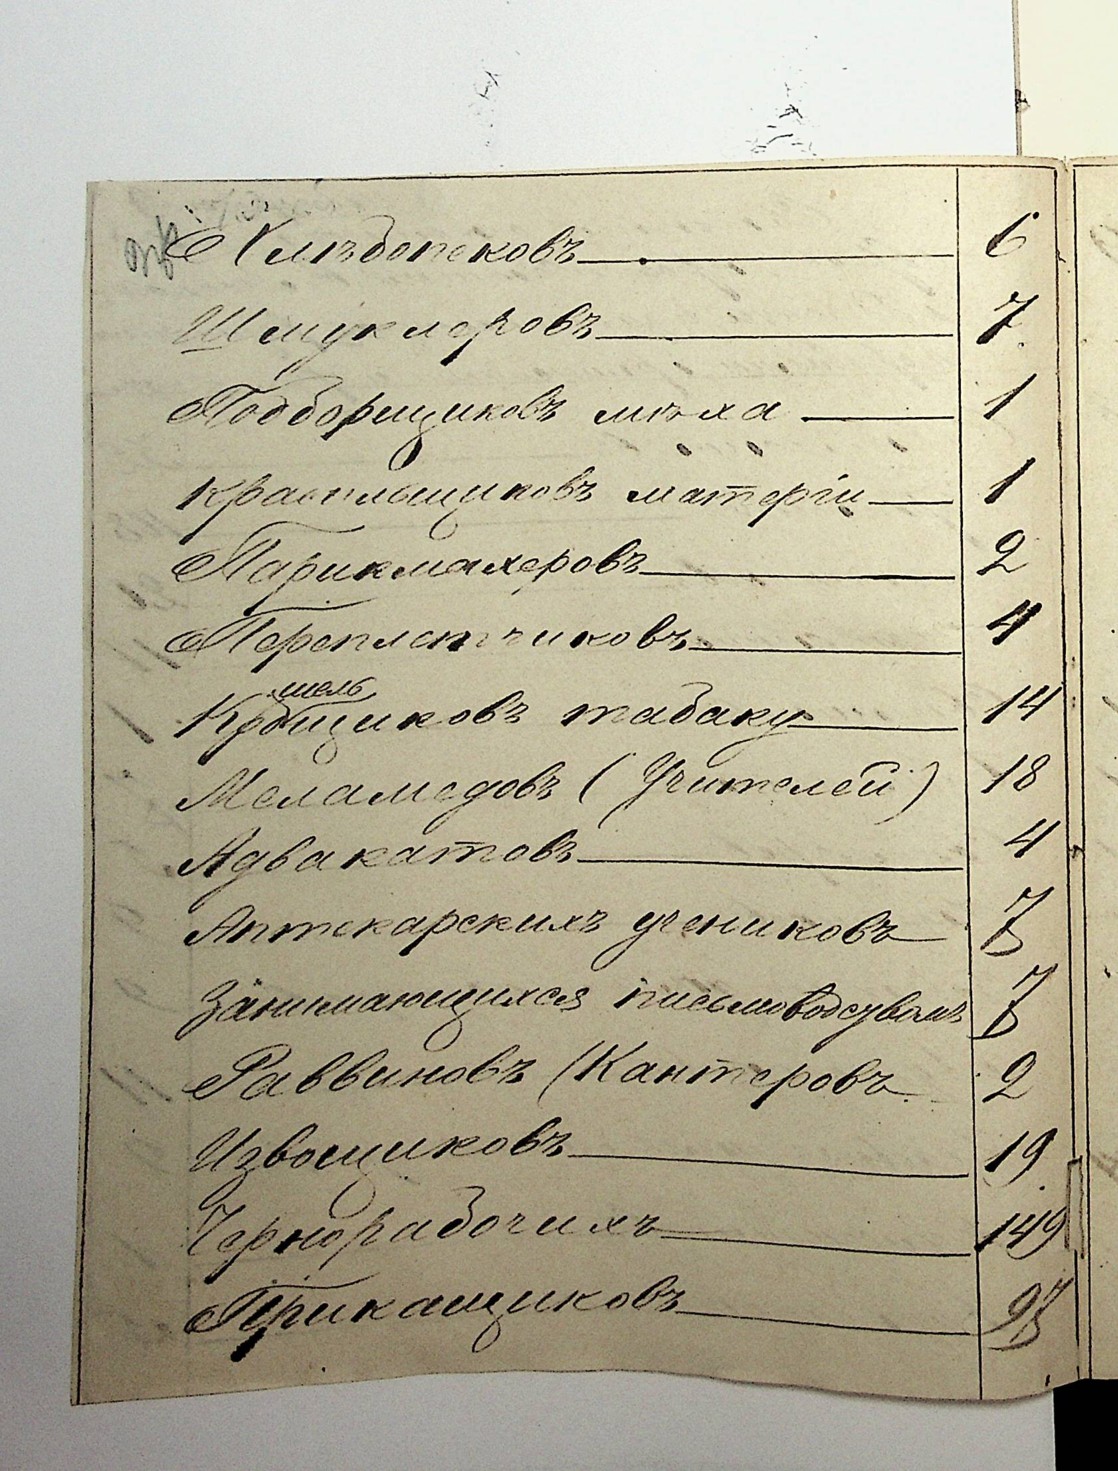 Хлѣбопековъ 6
Шмуклеровъ 7
Подборщиковъ мѣха 1
Красильщиковъ матеріи 1
Парикмахеровъ 2
Переплетчиковъ 4
шель
Крошщиковъ табаку 14
Меламедовъ (Учителей) 18
Адвакатовъ 4
Аптекарскихъ учениковъ 7
Занимающихся письмоводсувомъ 7
Раввиновъ (Кантеровъ 2
Извощиковъ 19
Чернорабочихъ 149
Прикащиковъ 97